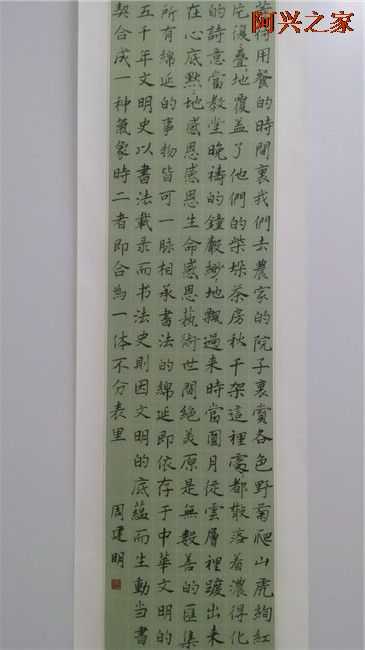 阿兴之家
荷用餐的時間裏我們去農家的院子裏賣各色野菊爬山虎絢紅
浸疊地覆蓋了他們的柴垛茶房秋千架這裡处都散落着濃得化
的詩意當教堂晚禱的鐘聲緲地飄過来時當圓月從雲層裡踱出来
在心底點地感恩感恩生命感恩藝術世間絕美原是無數善的匯集
所有綿延的事物皆可一脉相承書法的綿延即依存于中華文明的
五千年文明史以書法載录而书法史則因文明的底蘊而生動当書
契合成一种氣象時二者即合為一体不分表里
周建明